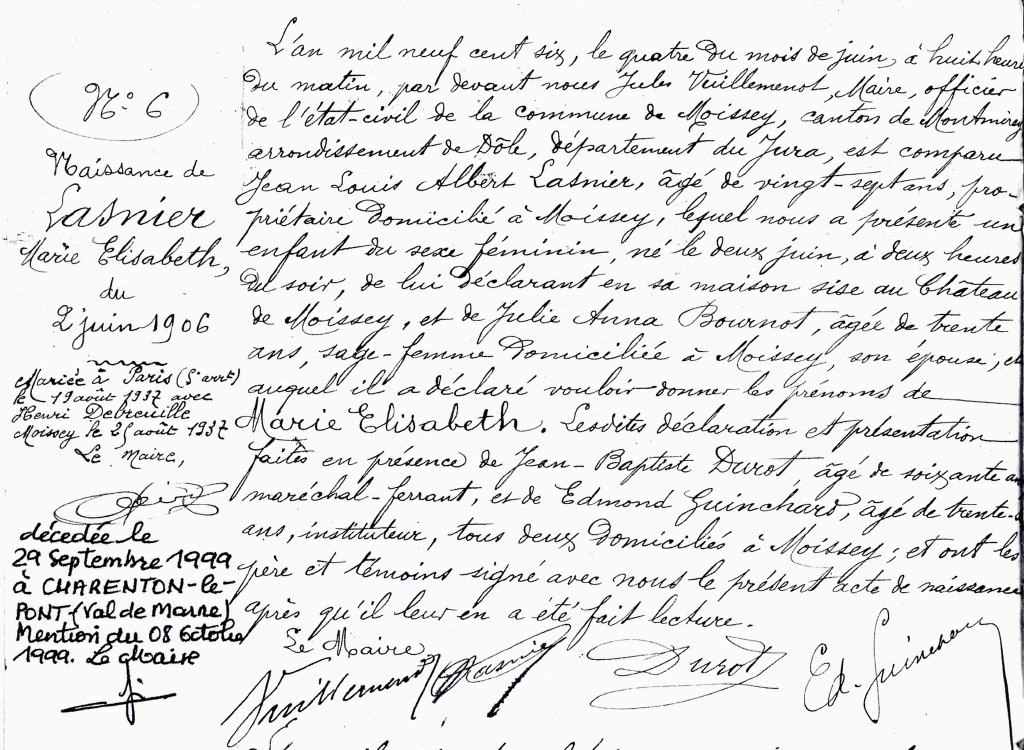 N° 6
Naissance de
Lasnier
Marie Elisabeth,
du
2 juin 1906
Mariée à Paris (5e arrt)
le 19 août 1937 avec
Henri Debreuille
Moissey le 25 août 1937
Le Maire,
décédée le
29 Septembre 1999
à CHARENTON-le-
PONT (Val de Marne)
Mention du 08 Octobre
1999. Le Maire
L'an mil neuf cent six, le quatre du mois de juin, à huit heures
du matin, par devant nous Jules Vuillemenot, Maire, officier
de l'état-civil de la commune de Moissey, canton de Montmirey
arrondissement de Dôle, département du Jura, est comparu
Jean Louis Albert Lasnier, âgé de vingt-sept ans, pro-
priétaire domicilié à Moissey, lequel nous a présenté un
enfant du sexe féminin, né le deux juin, à deux heures
du soir, de lui déclarant en sa maison sise au Château
de Moissey, et de Julie Anna Bournot, âgée de trente
ans, sage-femme domiciliée à Moissey, son épouse, et
auquel il a déclaré vouloir donner les prénoms de
Marie Elisabeth. Lesdites déclaration et présentation
faites en présence de Jean-Baptiste Durot, âgé de soixante an
maréchal-ferrant, et de Edmond Guinchard, âgé de trente-
ans, instituteur, tous deux domiciliés à Moissey; et ont les
père et témoins signé avec nous le présent acte de naissance
après qu'il leur en a été fait lecture.
Le Maire
Vuillemenot Lasnier Durot Ed. Guinchard